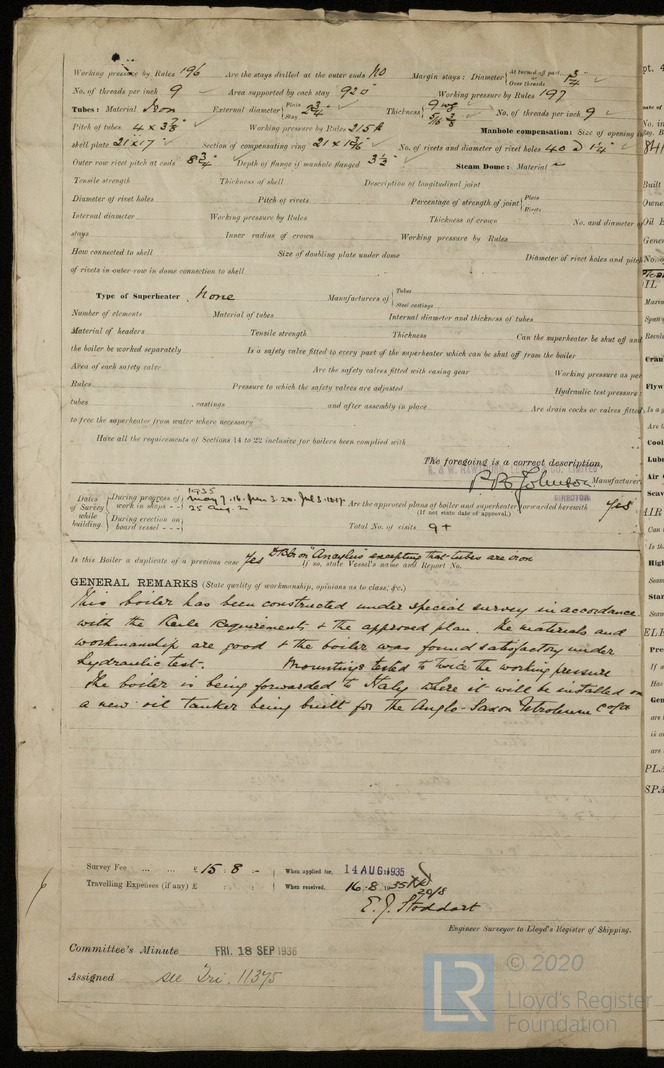 Working pressure by Rules 196 Are the stays drilled at the outer ends No Margin stays: Diameter { At turned off part, or Over threads 1 3/4"
No. of threads per inch 9 Area supported by each stay 920 Working pressure by Rules 197
Tubes: Material Iron External diameter { Plain Stay 2 3/4" Thickness { 9 WG 5/16 3/8 No. of threads per inch 9
Pitch of tubes 4 x 3 7/8 Working pressure by Rules 215 Manhole compensation: Size of opening in
shell plate 21 x 17 Section of compensating ring No. of rivets and diameter of rivet holes 40 @ 1 1/4"
Outer row rivet pitch at ends 8 3/4 Depth of flange if manhole flanged 3 1/2" Steam Dome: Material
Tensile strength Thickness of shell Description of longitudinal joint
Diameter of rivet holes Pitch of rivets Percentage of strength of joint { Plate Rivets
Internal diameter Working pressure by Rules Thickness of crown No. and diameter of
stays Inner radius of crown Working pressure by Rules
How connected to shell Size of doubling plate under dome Diameter of rivet holes and pitch
of rivets in outer row in dome connection to shell
Type of Superheater None Manufacturers of { Tubes Steel castings
Number of elements Material of tubes Internal diameter and thickness of tubes
Material of headers Tensile strength Thickness Can the superheater be shut off and
the boiler be worked separately Is a safety valve fitted to every part of the superheater which can be shut off from the boiler
Area of each safety valve Are the safety valves fitted with easing gear Working pressure as per
Rules Pressure to which the safety valves are adjusted Hydraulic test pressure:
tubes castings and after assembly in place Are drain cocks or valves fitted
to free the superheater from water where necessary
Have all the requirements of Sections 14 to 22 inclusive for boilers been complied with
The foregoing is a correct description,
Manufacturer
DIRECTOR
Dates of Survey while building { During progress of work in shops - - 1935 May 7. 16. Jun 3. 20. Jul 3. 25 Aug. 2 Are the approved plans of boiler and superheater forwarded herewith Yes
(If not state date of approval.)
During erection on board vessel - - - Total No. of visits 9+
Is this Boiler a duplicate of a previous case Yes If so, state Vessel's name and Report No. "Ancylus" excepting that tubes are iron
GENERAL REMARKS (State quality of workmanship, opinions as to class, &c.)
This boiler has been constructed under special survey in accordance
with the Rule Requirements + the approved plan. The materials and
workmanship are good + the boiler was found satisfactory under
hydraulic test. Mountings tested to twice the working pressure
The boiler is being forwarded to Italy where it will be installed on
a new oil tanker being built for the Anglo-Saxon Petroleum Co Ltd
Survey Fee ... ... £ 15 : 8 : - When applied for, 14 AUG 1935
Travelling Expenses (if any) £ : : When received, 16.8.1935
20/8
E. J. Stoddart
Engineer Surveyor to Lloyd's Register of Shipping.
Committee's Minute FRI. 18 SEP 1936
Assigned see Tri. 11375
LR © 2020
Lloyd's Register
Foundation